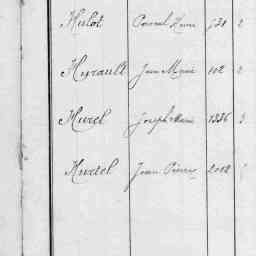 Hulot Marie 2
Hérault Jean Marie 102 2
Hurel Joseph Marie 1336 3
Hurtel Jean Pierre 2012